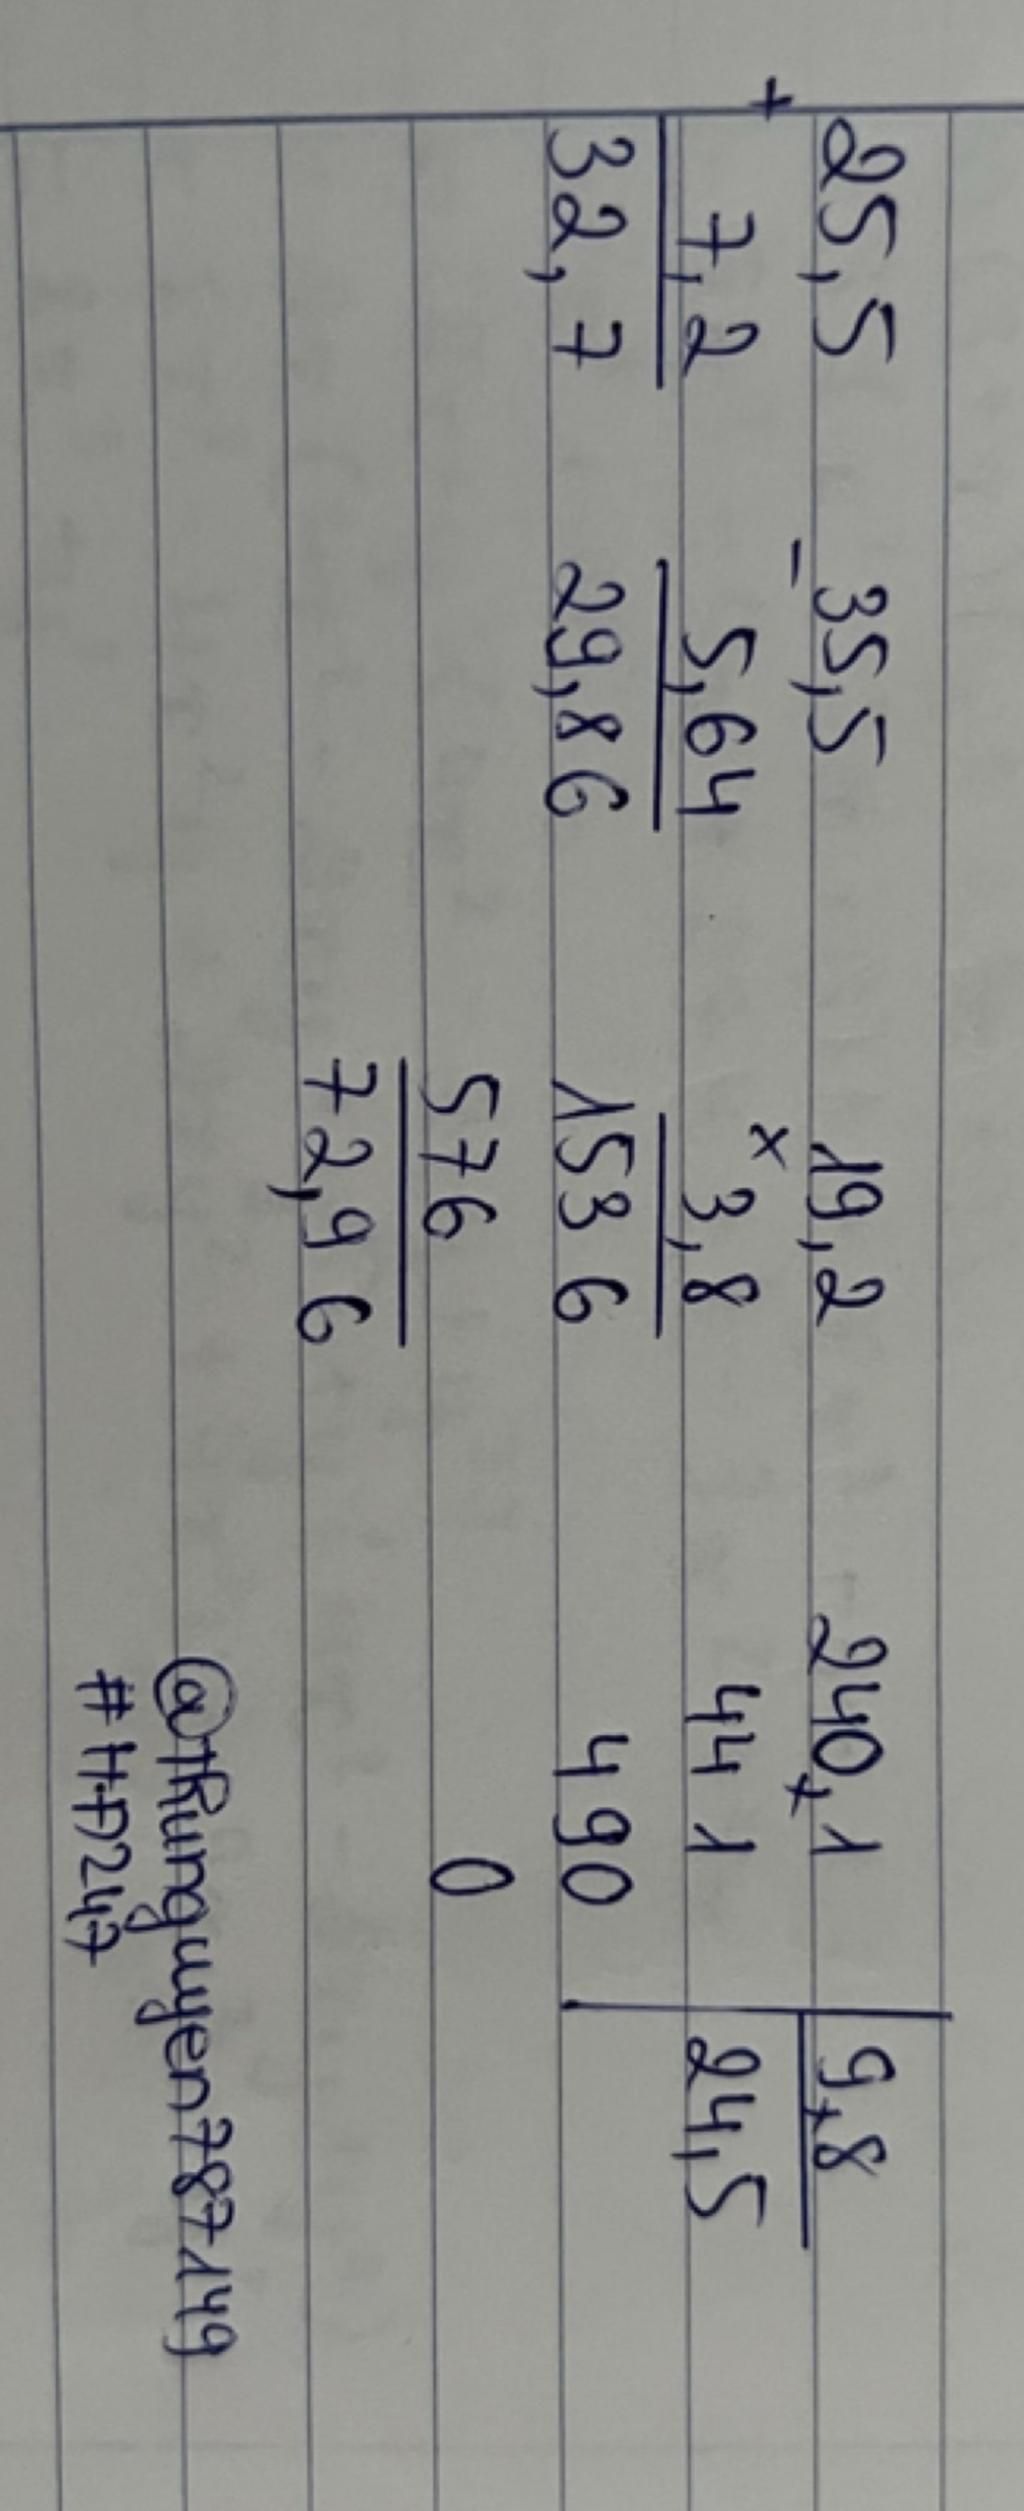 25,5
+
7,2
32,7
35,5
-
5,64
29,86
19,2
x
3,8
1536
576
72,96
240,1 9,8
441 24,5
490
0
@thunguyen787149
#H
247